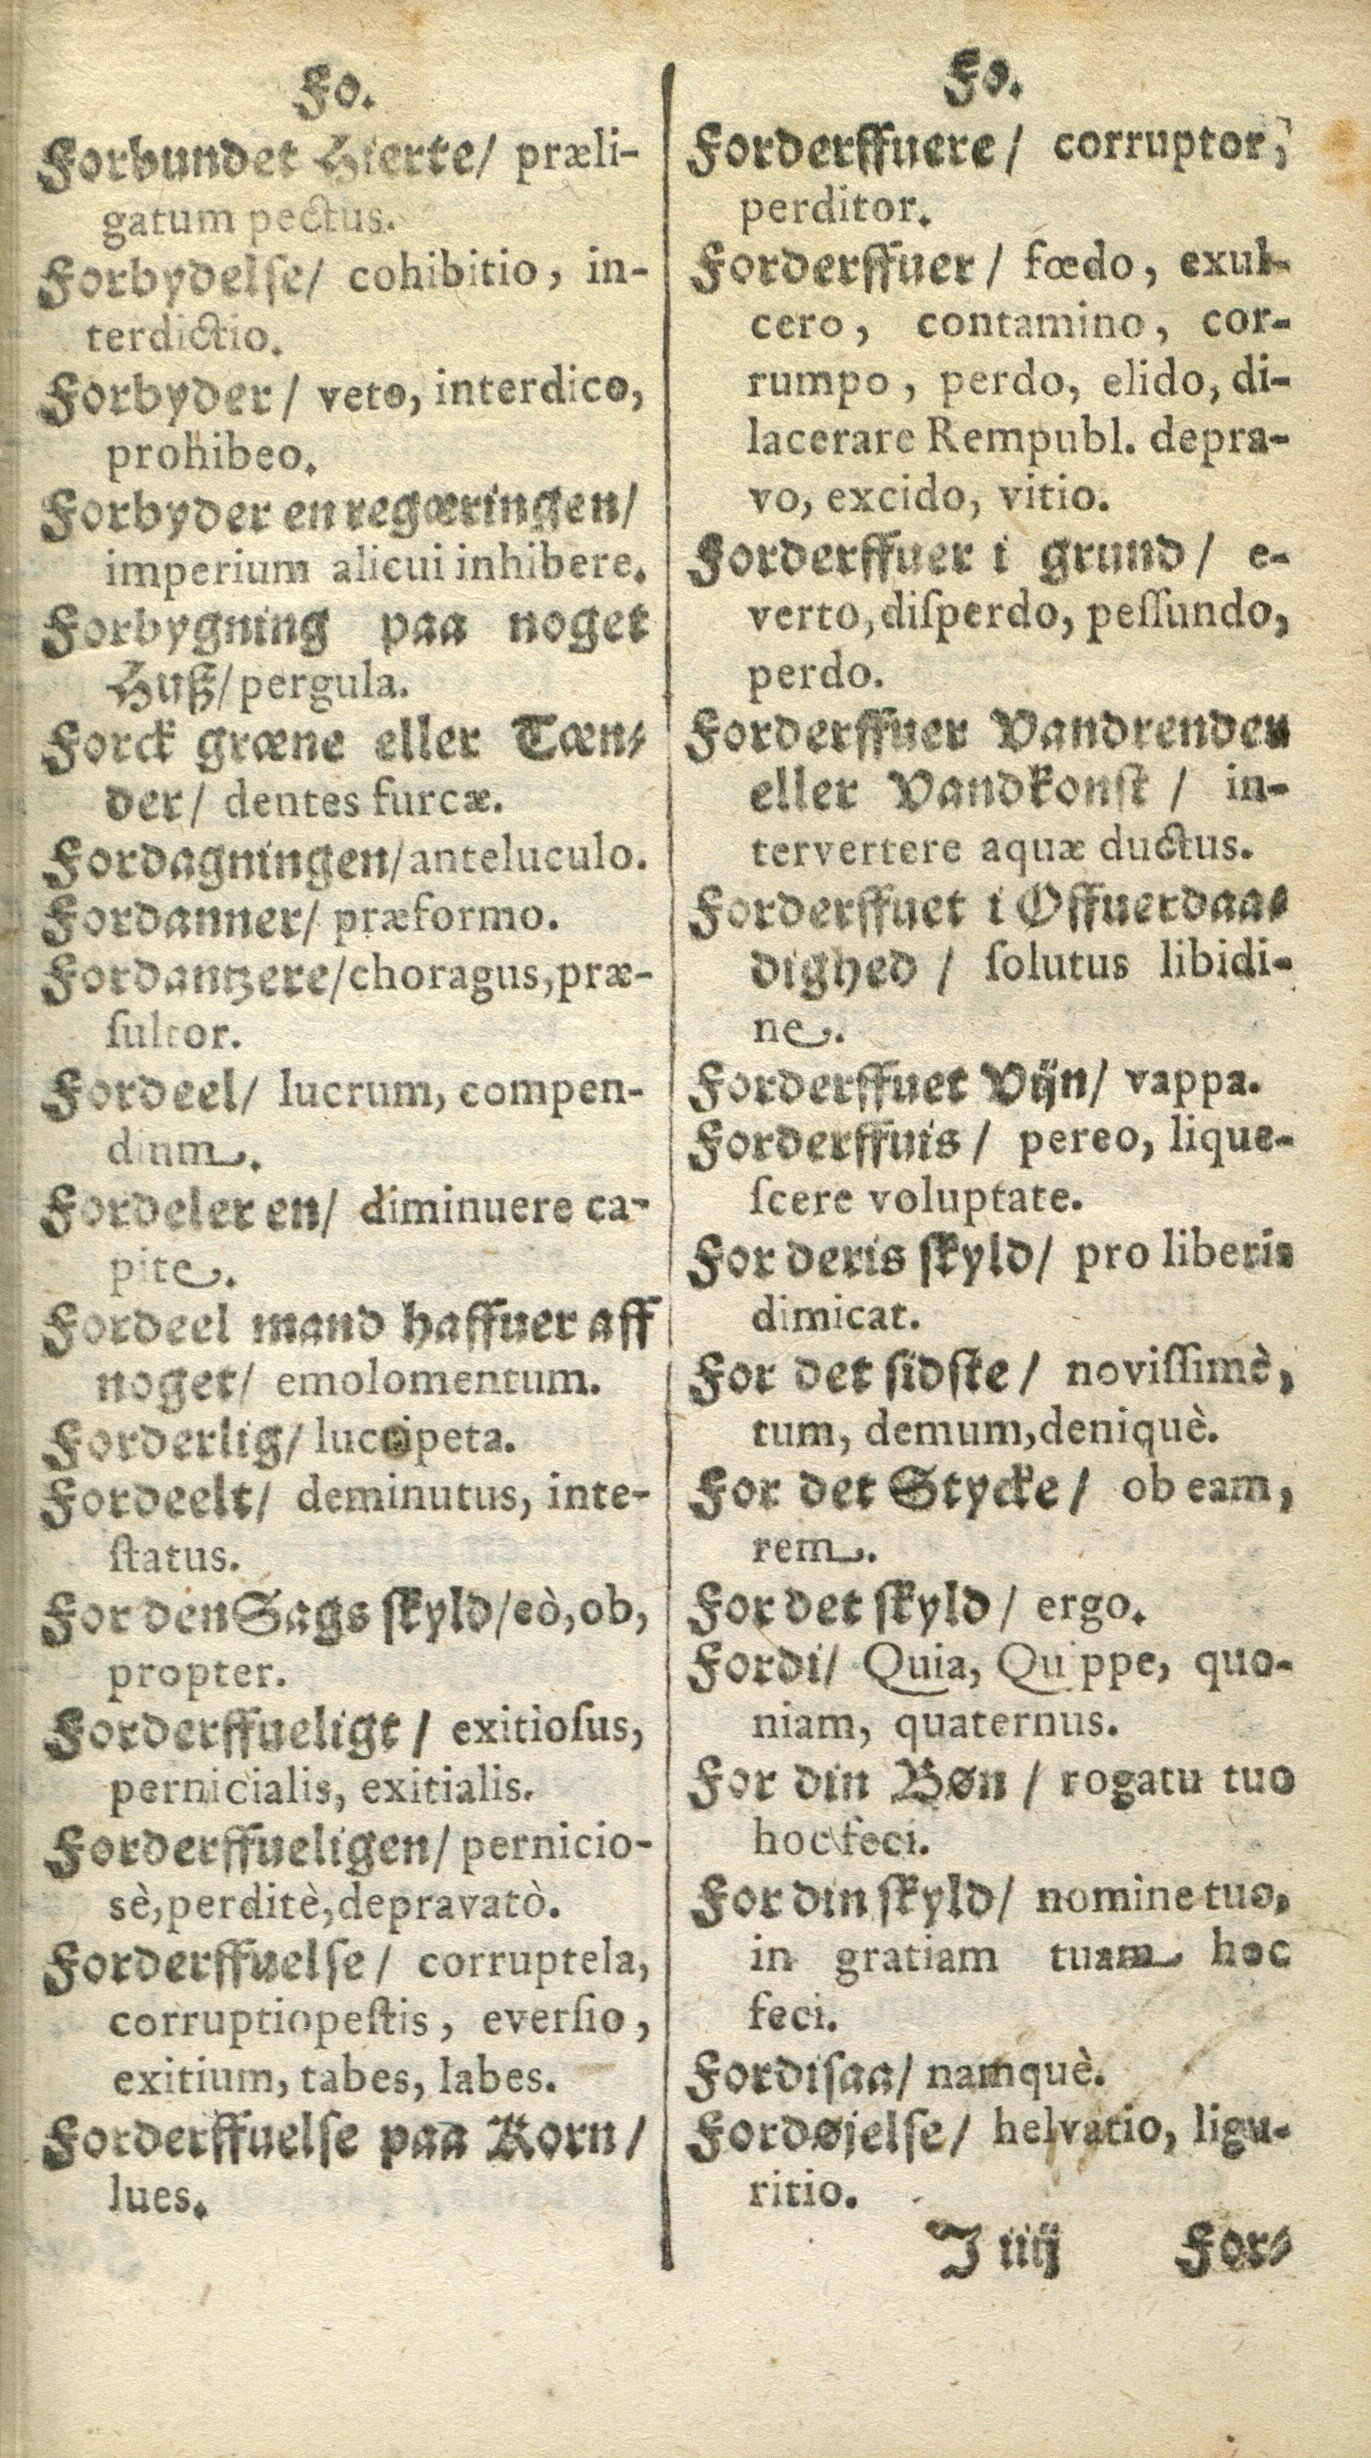 Fo.
Forbundet Hierte/ præli-
gatum pectus.
Forbydelſe/ cohibitio, in-
terdictio.
Forbyder/ veto, interdico,
prohibeo.
Forbyder en regæringen/
imperium alicui inhibere.
Forbygning paa noget
Huß/ pergula.
Forck græne eller Tæn-
der/ dentes furcæ.
Fordagningen/ anteluculo.
Fordanner/ præformo.
Fordantzere/ choragus, præ-
ſultor.
Fordeel/ lucrum, compen-
dium.
Fordeler en/ diminuere ca-
pite.
Fordeel mand haffuer aff
noget/ emolomentum.
Forderlig/ luccipeta.
Fordeelt/ deminutus, inte-
ſtatus.
For den Sags ſkyld/ eò, ob,
propter.
Forderffueligt/ exitioſus,
pernicialis, exitialis.
Forderffueligen/ pernicio-
sè, perditè, depravatò.
Forderffuelſe/ corruptela,
corruptio peſtis, everſio,
exitium, tabes, labes.
Forderffuelſe paa Korn/
lues.
Fo.
Forderffuere/ corruptor,
perditor.
Forderffuer/ fœdo, exul-
cero, contamino, cor-
rumpo, perdo, elido, di-
lacerare Rempubl. depra-
vo, excido, vitio.
Forderffuer i grund/ e-
verto, diſperdo, peſſundo,
perdo.
Forderffuer Vandrenden
eller Vandkonſt/ in-
tervertere aquæ ductus.
Forderffuet i Offuerdaa-
dighed/ ſolutus libidi-
ne.
Forderffuet Vijn/ vappa.
Forderffuis/ pereo, lique-
ſcere voluptate.
For deris ſkyld/ pro liberis
dimicat.
For det ſidſte/ noviſſimè,
tum, demum, deniquè.
For det Stycke/ ob eam,
rem.
For det ſkyld/ ergo.
Fordi/ Quia, Quippe, quo-
niam, quaternus.
For din Bøn/ rogatu tuo
hoc feci.
For din ſkyld/ nomine tuo,
in gratiam tuam hoc
feci.
Fordiſaa/ namquè.
Fordøjelſe/ helvatio, ligu-
ritio.
J iiij For-